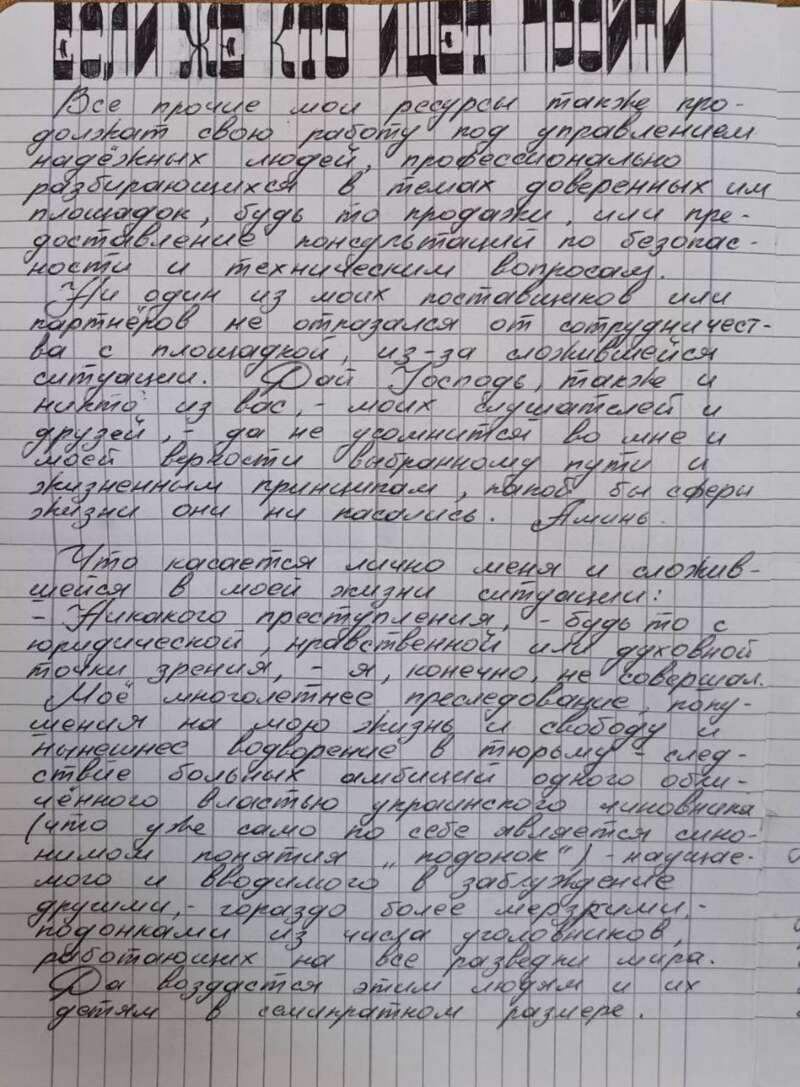 ЕСЛИ ЖЕ КТО ИЩЕТ ПРОЙТИ
Все прочие мои ресурсы также про-
должат свою работу под управлением
надёжных людей, профессионально
разбирающихся в темах доверенных им
площадок, будь то продажи, или пре-
доставление консультаций по безопас-
ности и техническим вопросам.
Ни один из моих поставщиков или
партнёров не отказался от сотрудничест-
ва с площадкой, из-за сложившейся
ситуации. Дай Господь, также и
никто из вас, - моих слушателей и
друзей, - да не усомнится во мне и
моей верности выбранному пути и
жизненным принципам, какой бы сферы
жизни они ни касались. Аминь.
Что касается лично меня и сложив-
шейся в моей жизни ситуации:
- Никакого преступления, - будь то с
юридической, нравственной или духовной
точки зрения, - я, конечно, не совершал.
Моё многолетнее преследование, поку-
шения на мою жизнь и свободу и
нынешнее водворение в тюрьму - след-
ствие больных амбиций одного обли-
чённого властью украинского чиновника
(что уже само по себе является сино-
нимом понятия „подонок") - наущае-
мого и вводимого в заблуждение
другими, - гораздо более мерзкими, -
подонками из числа уголовников,
работающих на все разведки мира.
Да воздастся этим людям и их
детям в семикратном размере.